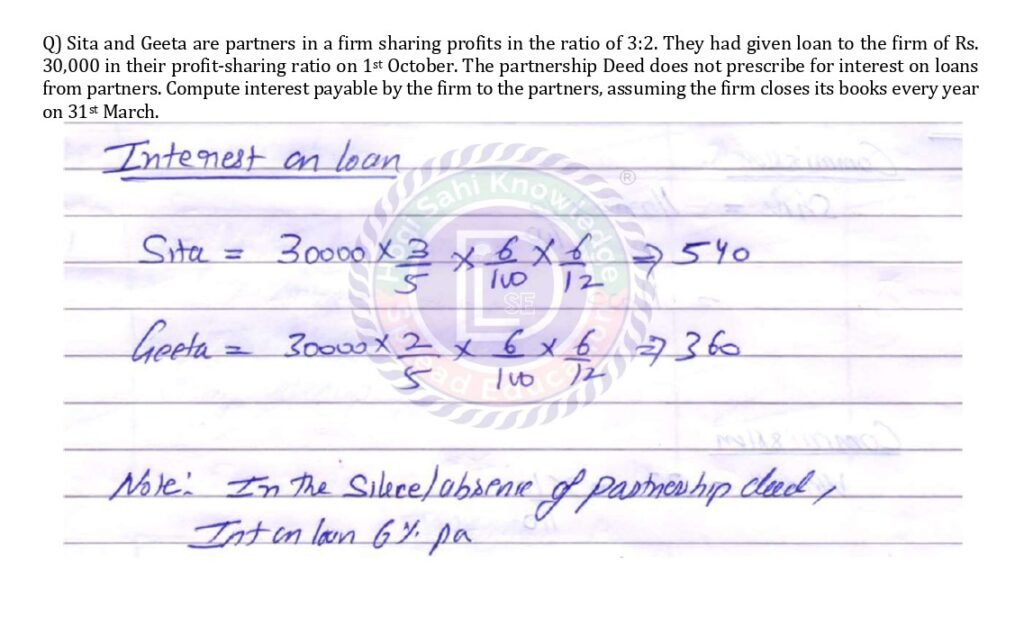 Q) Sita and Geeta are partners in a firm sharing profits in the ratio of 3:2. They had given loan to the firm of Rs.
30,000 in their profit-sharing ratio on 1st October. The partnership Deed does not prescribe for interest on loans
from partners. Compute interest payable by the firm to the partners, assuming the firm closes its books every year
on 31st March.
Interest on loan
Sita = 30000 X 3/5 X 6/100 X 6/12 ⇒ 540
Geeta = 30000 X 2/5 X 6/100 X 6/12 ⇒ 360
Note: In the Silece/absence of partnership deed,
Int on loan 6% pa
Sahi Knowledge
®
SE